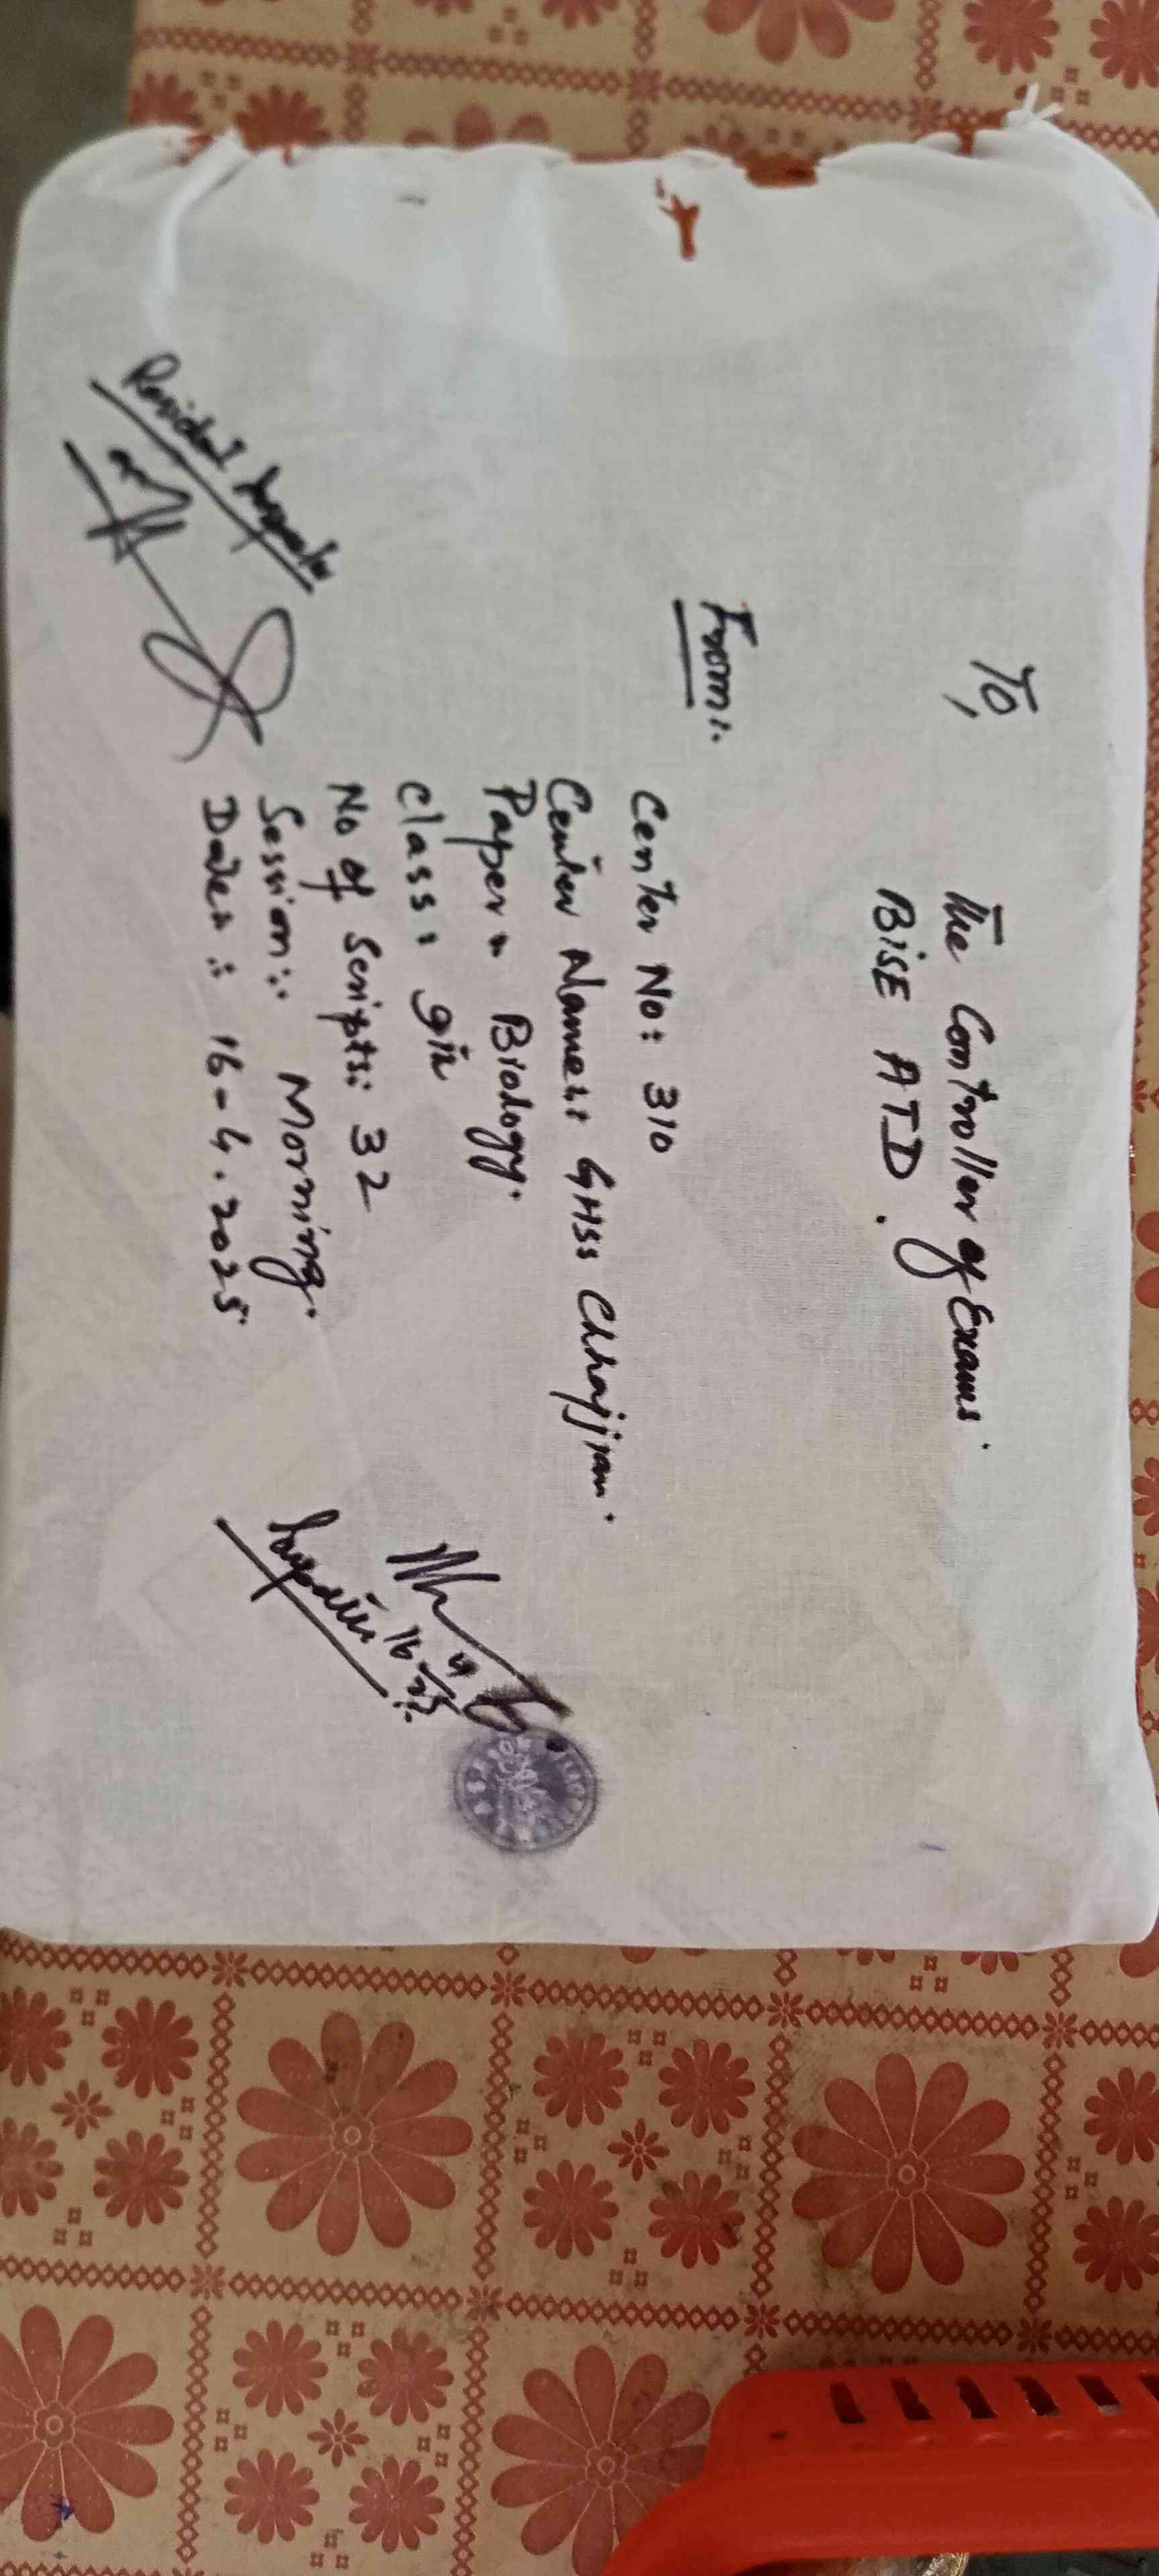 To,
The Controller of Exams.
BISE ATD.
From:.
Center No: 310
Center Name: GHSS Chhajjian.
Paper: Biology.
Class: 9th
No of Scripts: 32
Session: Morning.
Date: 16-4-2025
Resident Inspector
16/4/25